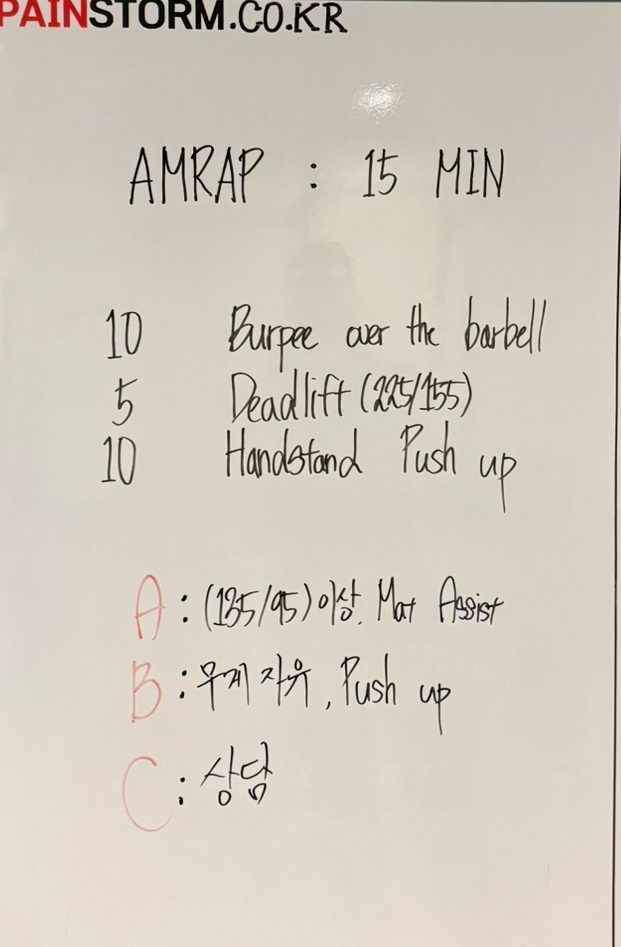 PAINSTORM.CO.KR
AMRAP : 15 MIN
10 Burpee over the barbell
5 Deadlift (225/155)
10 Handstand Push up
A : (135/95) 이상. Mat Assist
B : 무게 자유, Push up
C : 상담